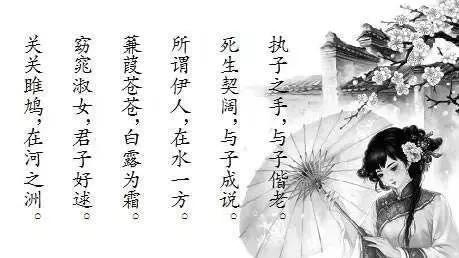 关关雎鸠,在河之洲。
窈窕淑女,君子好逑。
蒹葭苍苍,白露为霜。
所谓伊人,在水一方。
死生契阔,与子成说。
执子之手,与子偕老。